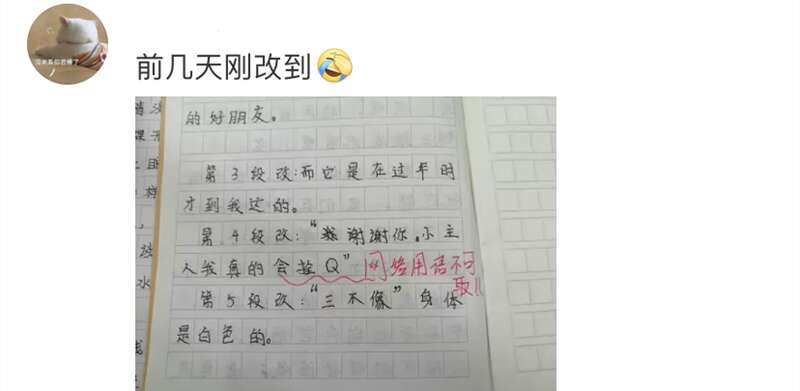 前几天刚改到🤣
的好朋友。
第3段改:而它是在过年时
才到我这的。
第4段改:“谢谢你。小主
人我真的会拴Q”
网络用语不可
取!!
第5段改:“三不像”身体
是白色的。